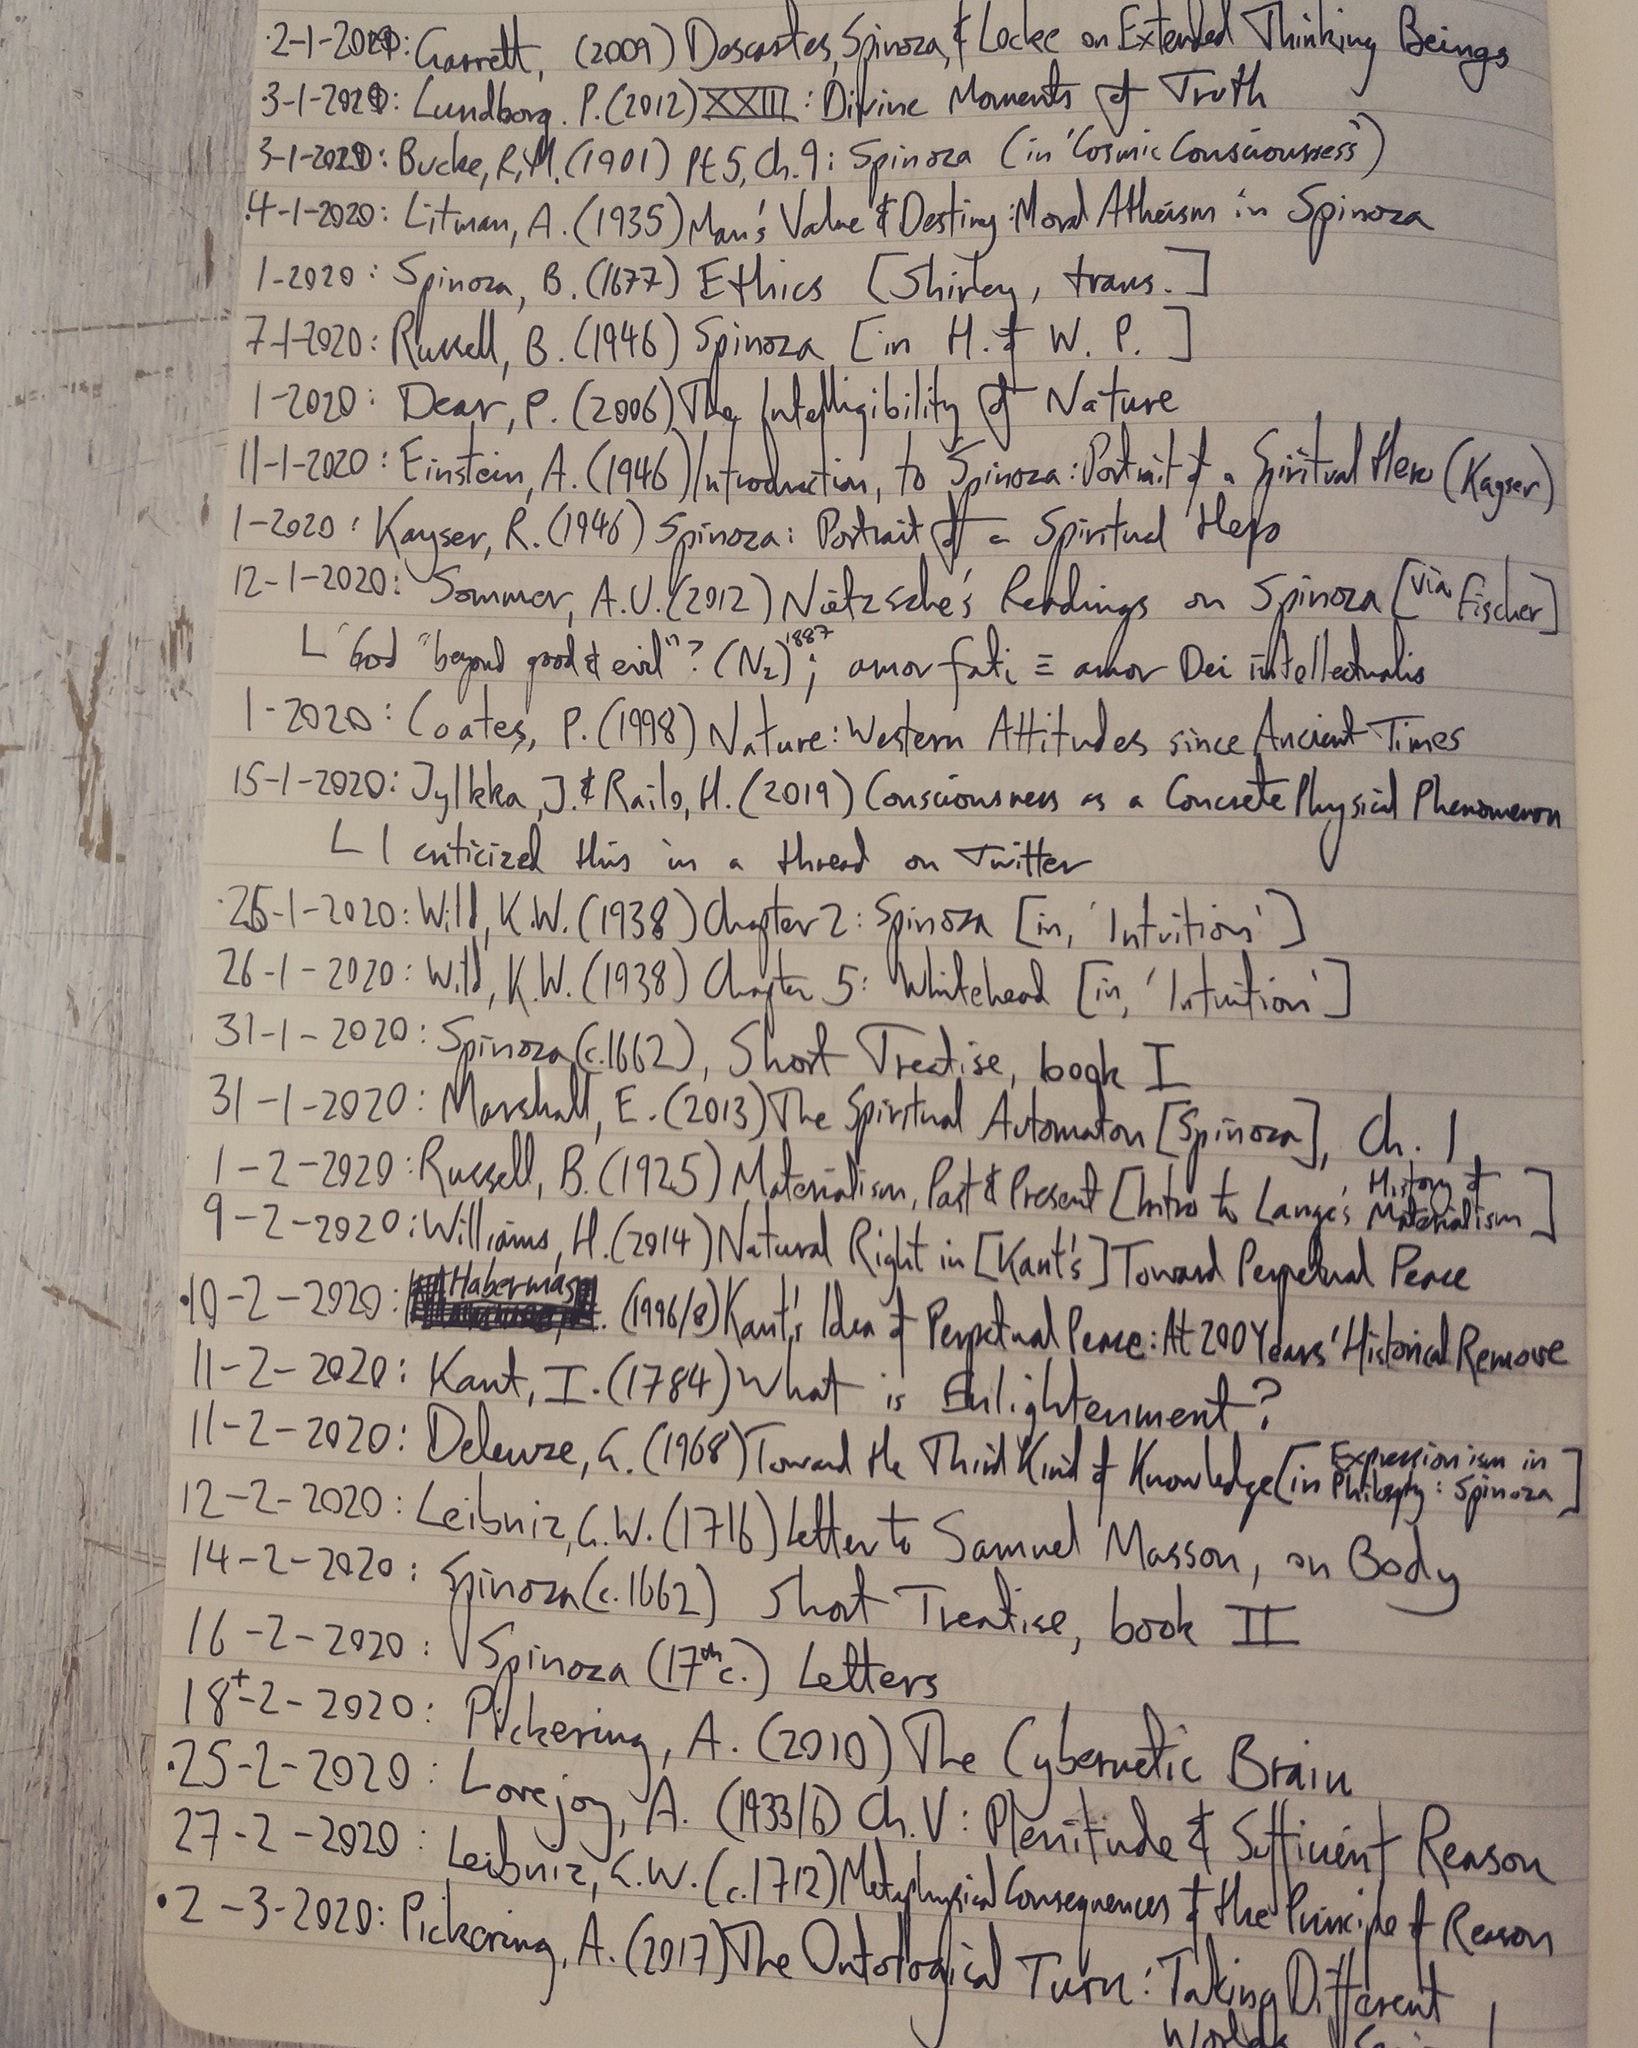 ·2-1-2020: Garrett, (2009) Descartes, Spinoza, & Locke on Extended Thinking Beings
·3-1-2020: Lundborg. P. (2012) XXIII: Divine Moments of Truth
3-1-2020: Bucke, R.M. (1901) Pt 5, Ch. 9: Spinoza (in 'Cosmic Consciousness')
·4-1-2020: Litman, A. (1935) Man's Value & Destiny: Moral Atheism in Spinoza
1-2020: Spinoza, B. (1677) Ethics [Shirley, trans.]
7-1-2020: Russell, B. (1946) Spinoza [in H. of W. P.]
1-2020: Dear, P. (2006) The Intelligibility of Nature
11-1-2020: Einstein, A. (1946) Introduction, to Spinoza: Portrait of a Spiritual Hero (Kayser)
1-2020: Kayser, R. (1946) Spinoza: Portrait of a Spiritual Hero
12-1-2020: Sommer, A.U. (2012) Nietzsche's Readings on Spinoza [via Fischer]
L God "beyond good & evil"? (N₂)¹⁸⁸⁷; amor fati ≡ amor Dei intellectualis
1-2020: Coates, P. (1998) Nature: Western Attitudes since Ancient Times
15-1-2020: Jylkka, J. & Railo, H. (2019) Consciousness as a Concrete Physical Phenomenon
L I criticized this in a thread on Twitter
·26-1-2020: Wild, K.W. (1938) Chapter 2: Spinoza [in, 'Intuition']
26-1-2020: Wild, K.W. (1938) Chapter 5: Whitehead [in, 'Intuition']
31-1-2020: Spinoza (c.1662), Short Treatise, book I
31-1-2020: Marshall, E. (2013) The Spiritual Automaton [Spinoza], Ch. 1
1-2-2020: Russell, B. (1925) Materialism, Past & Present [Intro to Lange's History of Materialism]
9-2-2020: Williams, H. (2014) Natural Right in [Kant's] Toward Perpetual Peace
·10-2-2020: Habermas. (1996/8) Kant's Idea of Perpetual Peace: At 200 Years' Historical Remove
11-2-2020: Kant, I. (1784) What is Enlightenment?
11-2-2020: Deleuze, G. (1968) Toward the Third Kind of Knowledge [in Expressionism in Philosophy: Spinoza]
12-2-2020: Leibniz, G.W. (1716) Letter to Samuel Masson, on Body
14-2-2020: Spinoza (c.1662) Short Treatise, book II
16-2-2020: Spinoza (17th c.) Letters
18+-2-2020: Pickering, A. (2010) The Cybernetic Brain
·25-2-2020: Lovejoy, A. (1933/6) Ch. V: Plenitude & Sufficient Reason
27-2-2020: Leibniz, G.W. (c.1712) Metaphysical Consequences of the Principle of Reason
·2-3-2020: Pickering, A. (2017) The Ontological Turn: Taking Different
Worlds